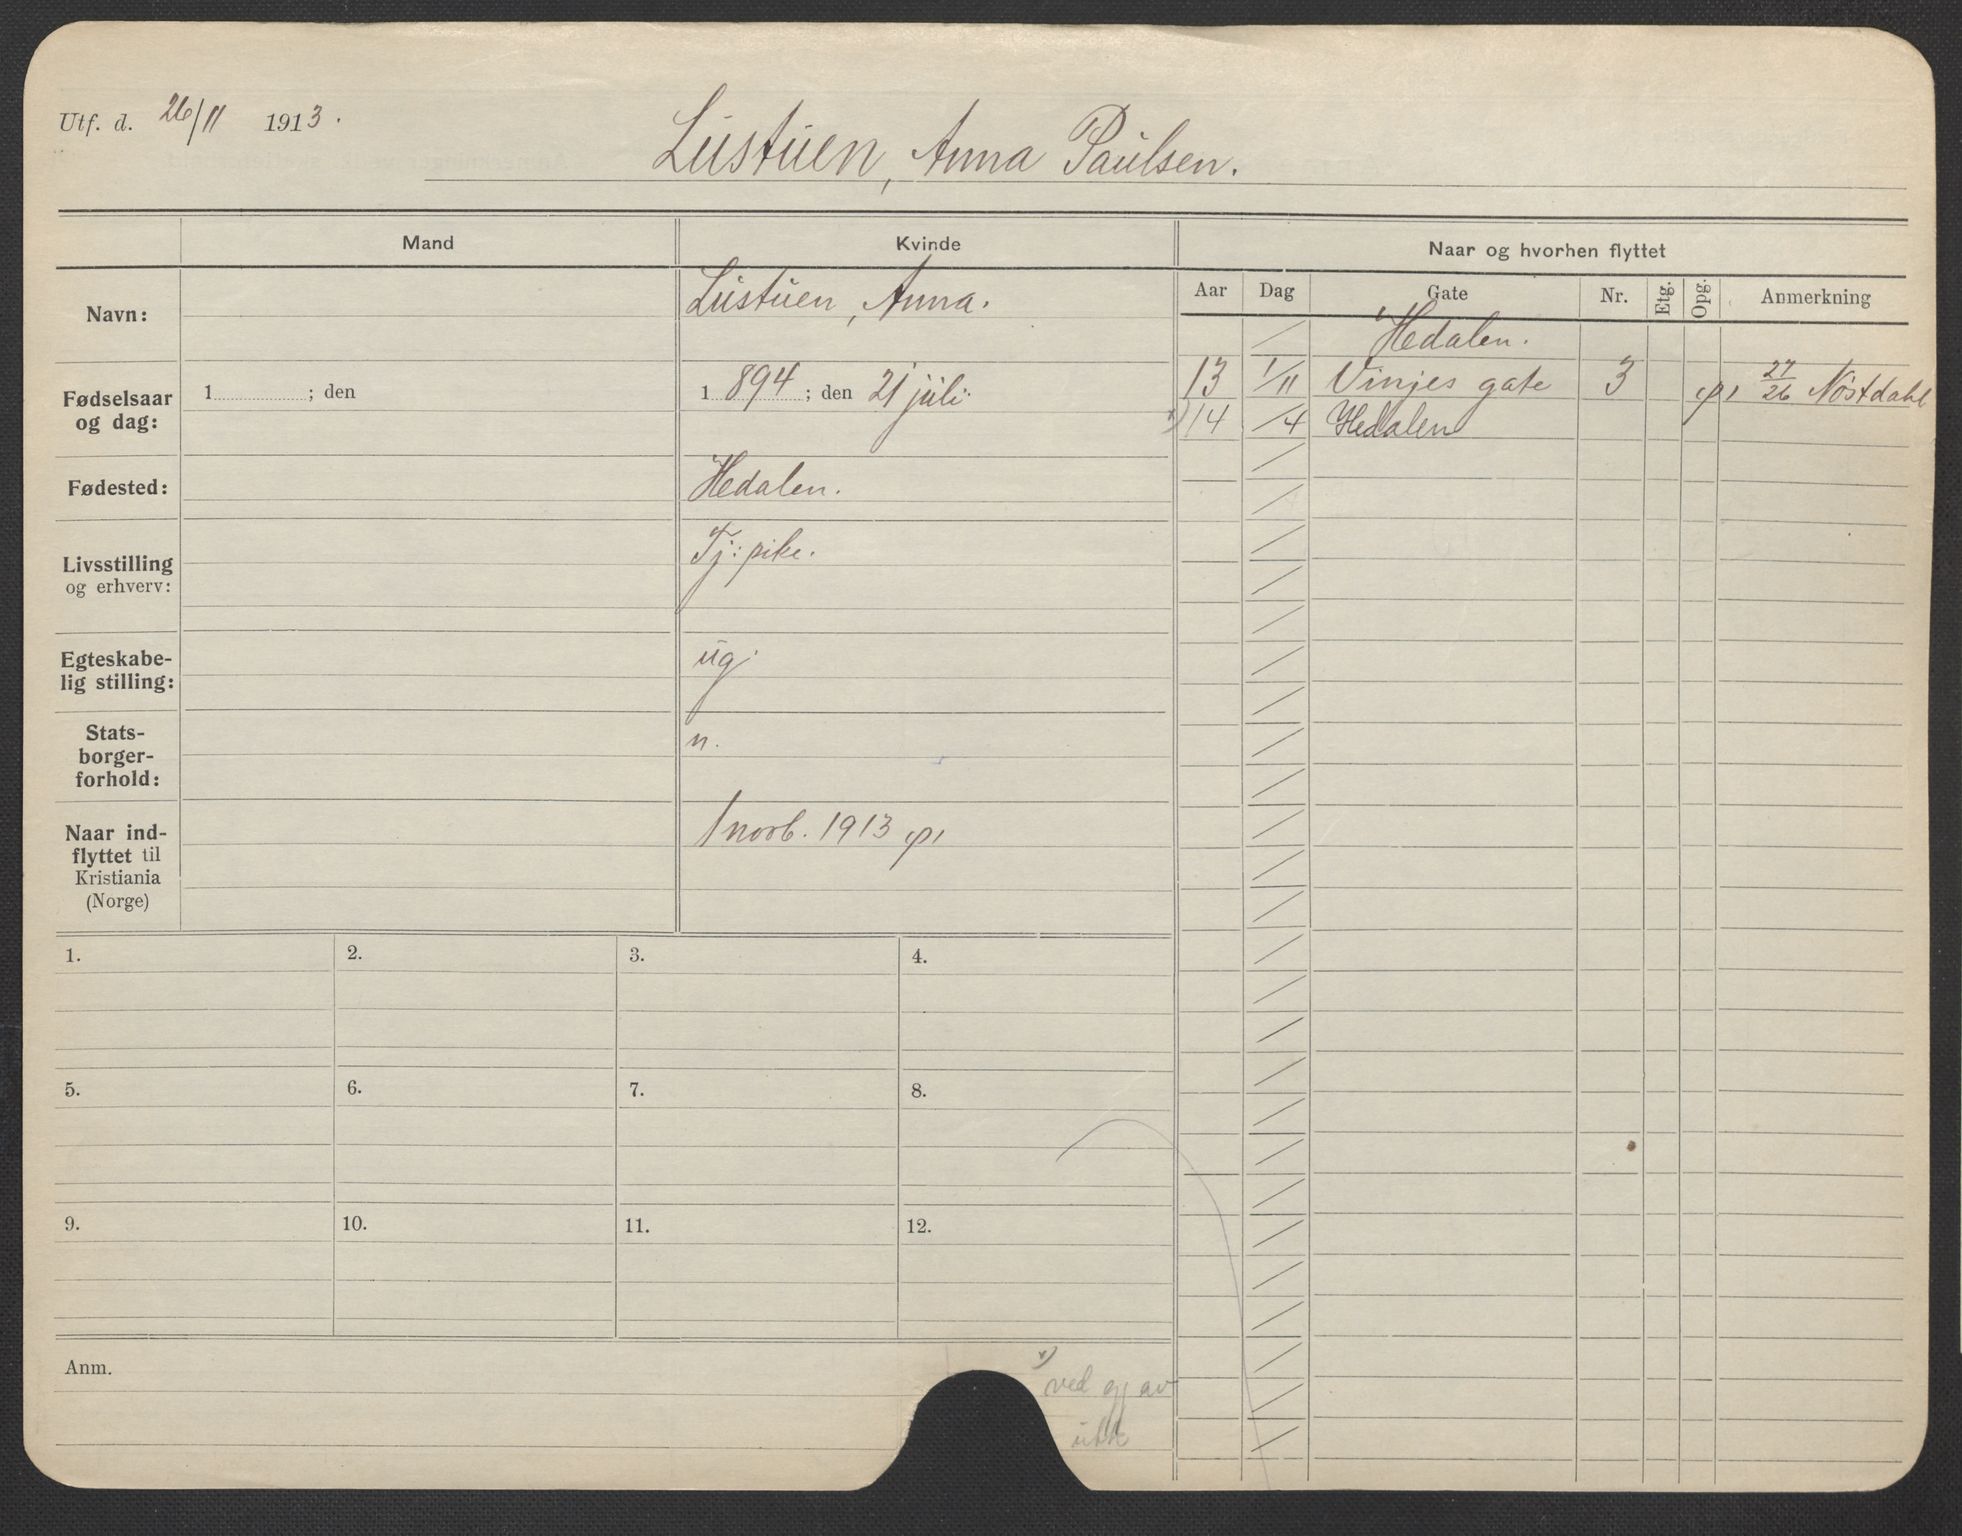 Utf. d. 26/11 1913.
Lustuen, Anna Paulsen.
Mand
Kvinde
Naar og hvorhen flyttet
Aar Dag Gate Nr. Etg. Opg. Anmerkning
Navn:
Lustuen, Anna.
Hedalen.
Fødselsaar og dag:
1 ; den
1 894 ; den 21 juli.
13 1/11 Vinjes gate 3 27/26 Nöstdahl
x) 14 /4 Hedalen
Fødested:
Hedalen.
Livsstilling
og erhverv:
Tj: pike.
Egteskabe-
lig stilling:
ug.
Stats-
borger-
forhold:
n.
Naar ind-
flyttet til
Kristiania
(Norge)
1 novb. 1913
1. 2. 3. 4.
5. 6. 7. 8.
9. 10. 11. 12.
Anm.
x) ved gj av